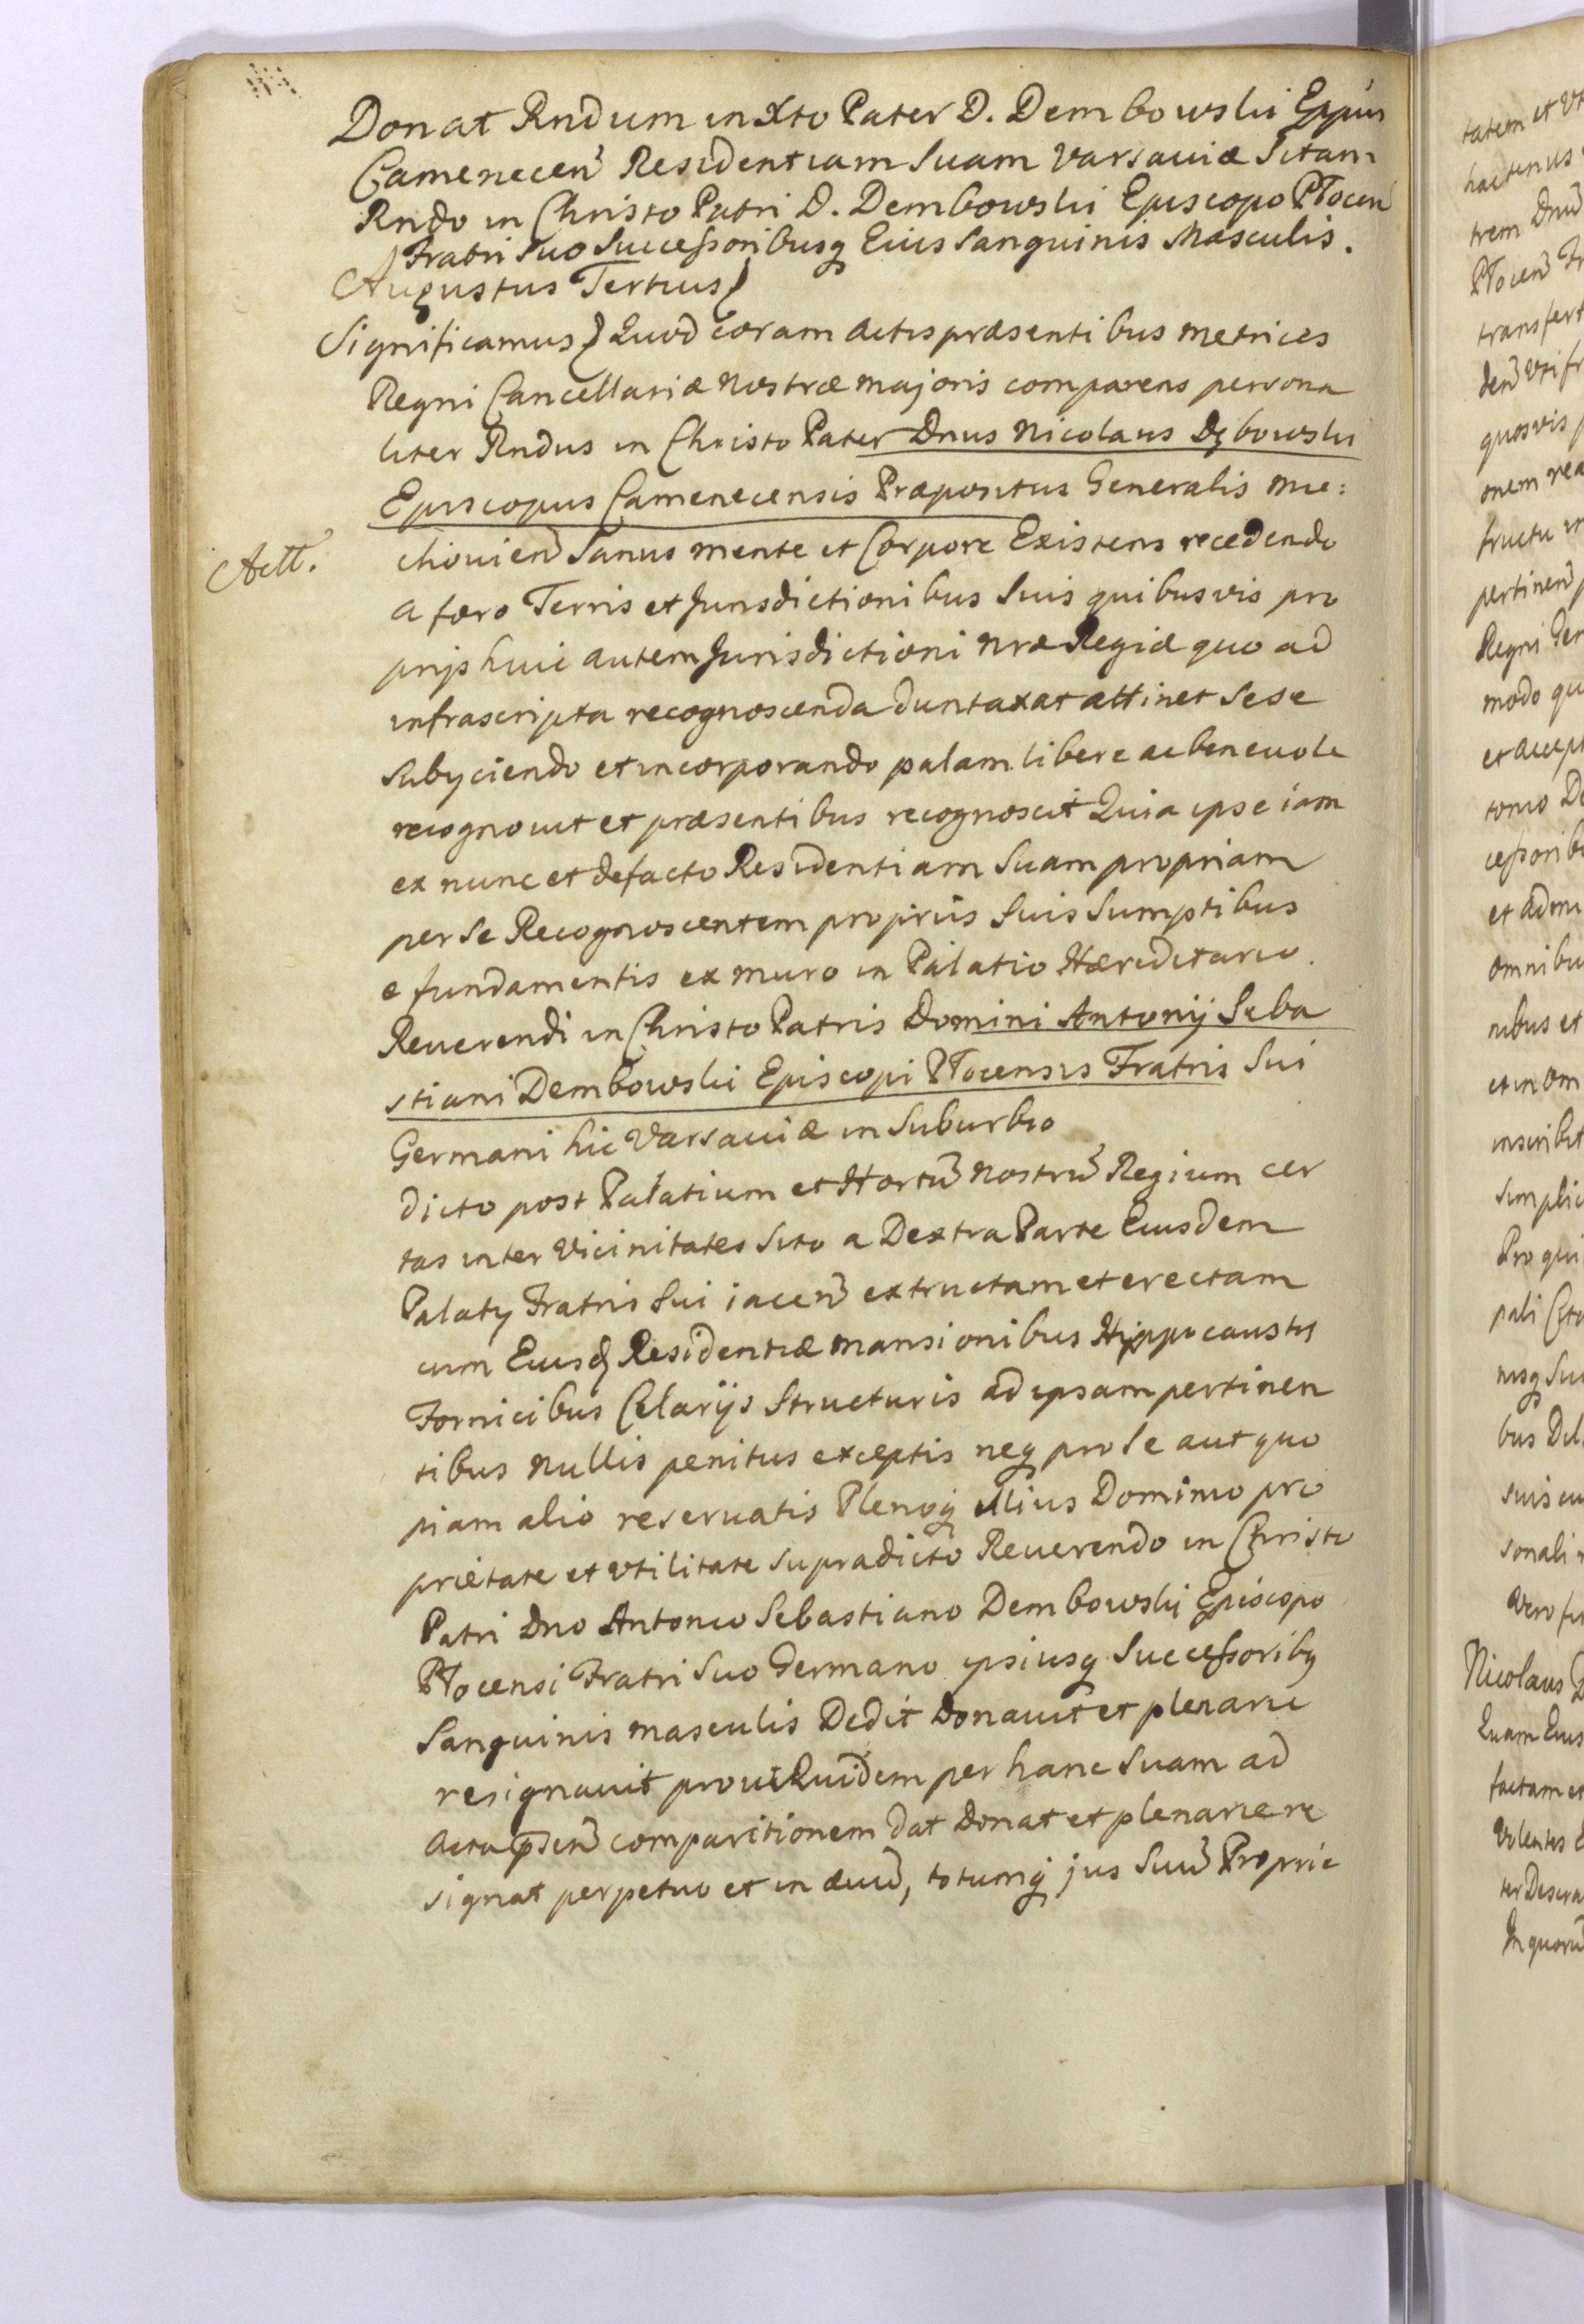 Donat Rndum in Xto Pater D. Dembowski Eppus
Camenecen̄ Residentiam Suam Varsaviæ Sitam
Rndo in Christo Patri D. Dembowski Episcopo Płocen̄
Fratri Suo Successoribusq Eius Sanguinis Masculis.
Augustus Tertius)
Significamus) Quod coram Actis præsentibus Metrices
Regni Cancellariæ Nostræ majoris comparens persona
liter Rndus in Christo Pater Dnus Nicolaus Dębowski
Episcopus Camenecensis Præpositus Generalis Mie:
Actt.
chovien̄ Sanus mente et Corpore Existens recedendo
a foro Terris et Jurisdictionibus Suis quibusvis pro
prijs huic autem Jurisdictioni nræ Regiæ quo ad
infrascripta recognoscenda duntaxat attinet Sese
Subyciendo et incorporando palam libere ac benevole
recognovit et præsentibus recognoscit Quia ipse iam
ex nunc et defacto Residentiam Suam propriam
per Se Recognoscentem propriis Suis Sumptibus
e fundamentis ex muro in Palatio Hæreditario
Reverendi in Christo Patris Domini Antonij Seba
stiani Dembowski Episcopi Płocensis Fratris Sui
Germani hic Varsaviæ in Suburbio
dicto post Palatium et Hortū Nostrū Regium cer
tas inter Vicinitates Sito a Dextra Parte Eiusdem
Palaty Fratris Sui iacen̄ extructam et erectam
cum Eiusd Residentiæ mansionibus Hippocaustis
Fornicibus Celarijs Structuris ad ipsam pertinen
tibus Nullis penitus exceptis neq pro Se aut quo
piam alio reservatis Plenoq illius Dominio pro
prietate et Utilitate Supradicto Reverendo in Christo
Patri Dno Antonio Sebastiano Dembowski Episcopo
Płocensi Fratri Suo Germano ipsiusq Successoribq
Sanguinis masculis Dedit Donavit et plenarie
resignavit prout Quidem per hanc Suam ad
Acta p̄sen̄ comparitionem dat Donat et plenarie re
signat perpetuo et in ævū, totumq jus Suū Proprie
tatem et Ut
hactenus
trem Dnū
Płocen̄ Fr
transfert
den̄ Usifr
quosvis p
onem rea
fructu in
pertinen̄ p
Regni Gen
modo qu
et accept
tonio De
cessoribu
et admi
omnibu
nibus et
et in om
inscribit
simplic
Pro qui
pali
nisq Suc
bus Del
suis cu
sonali r
Vero fu
Nicolaus D
Quam Eius
factam et
Volentes E
In quorū